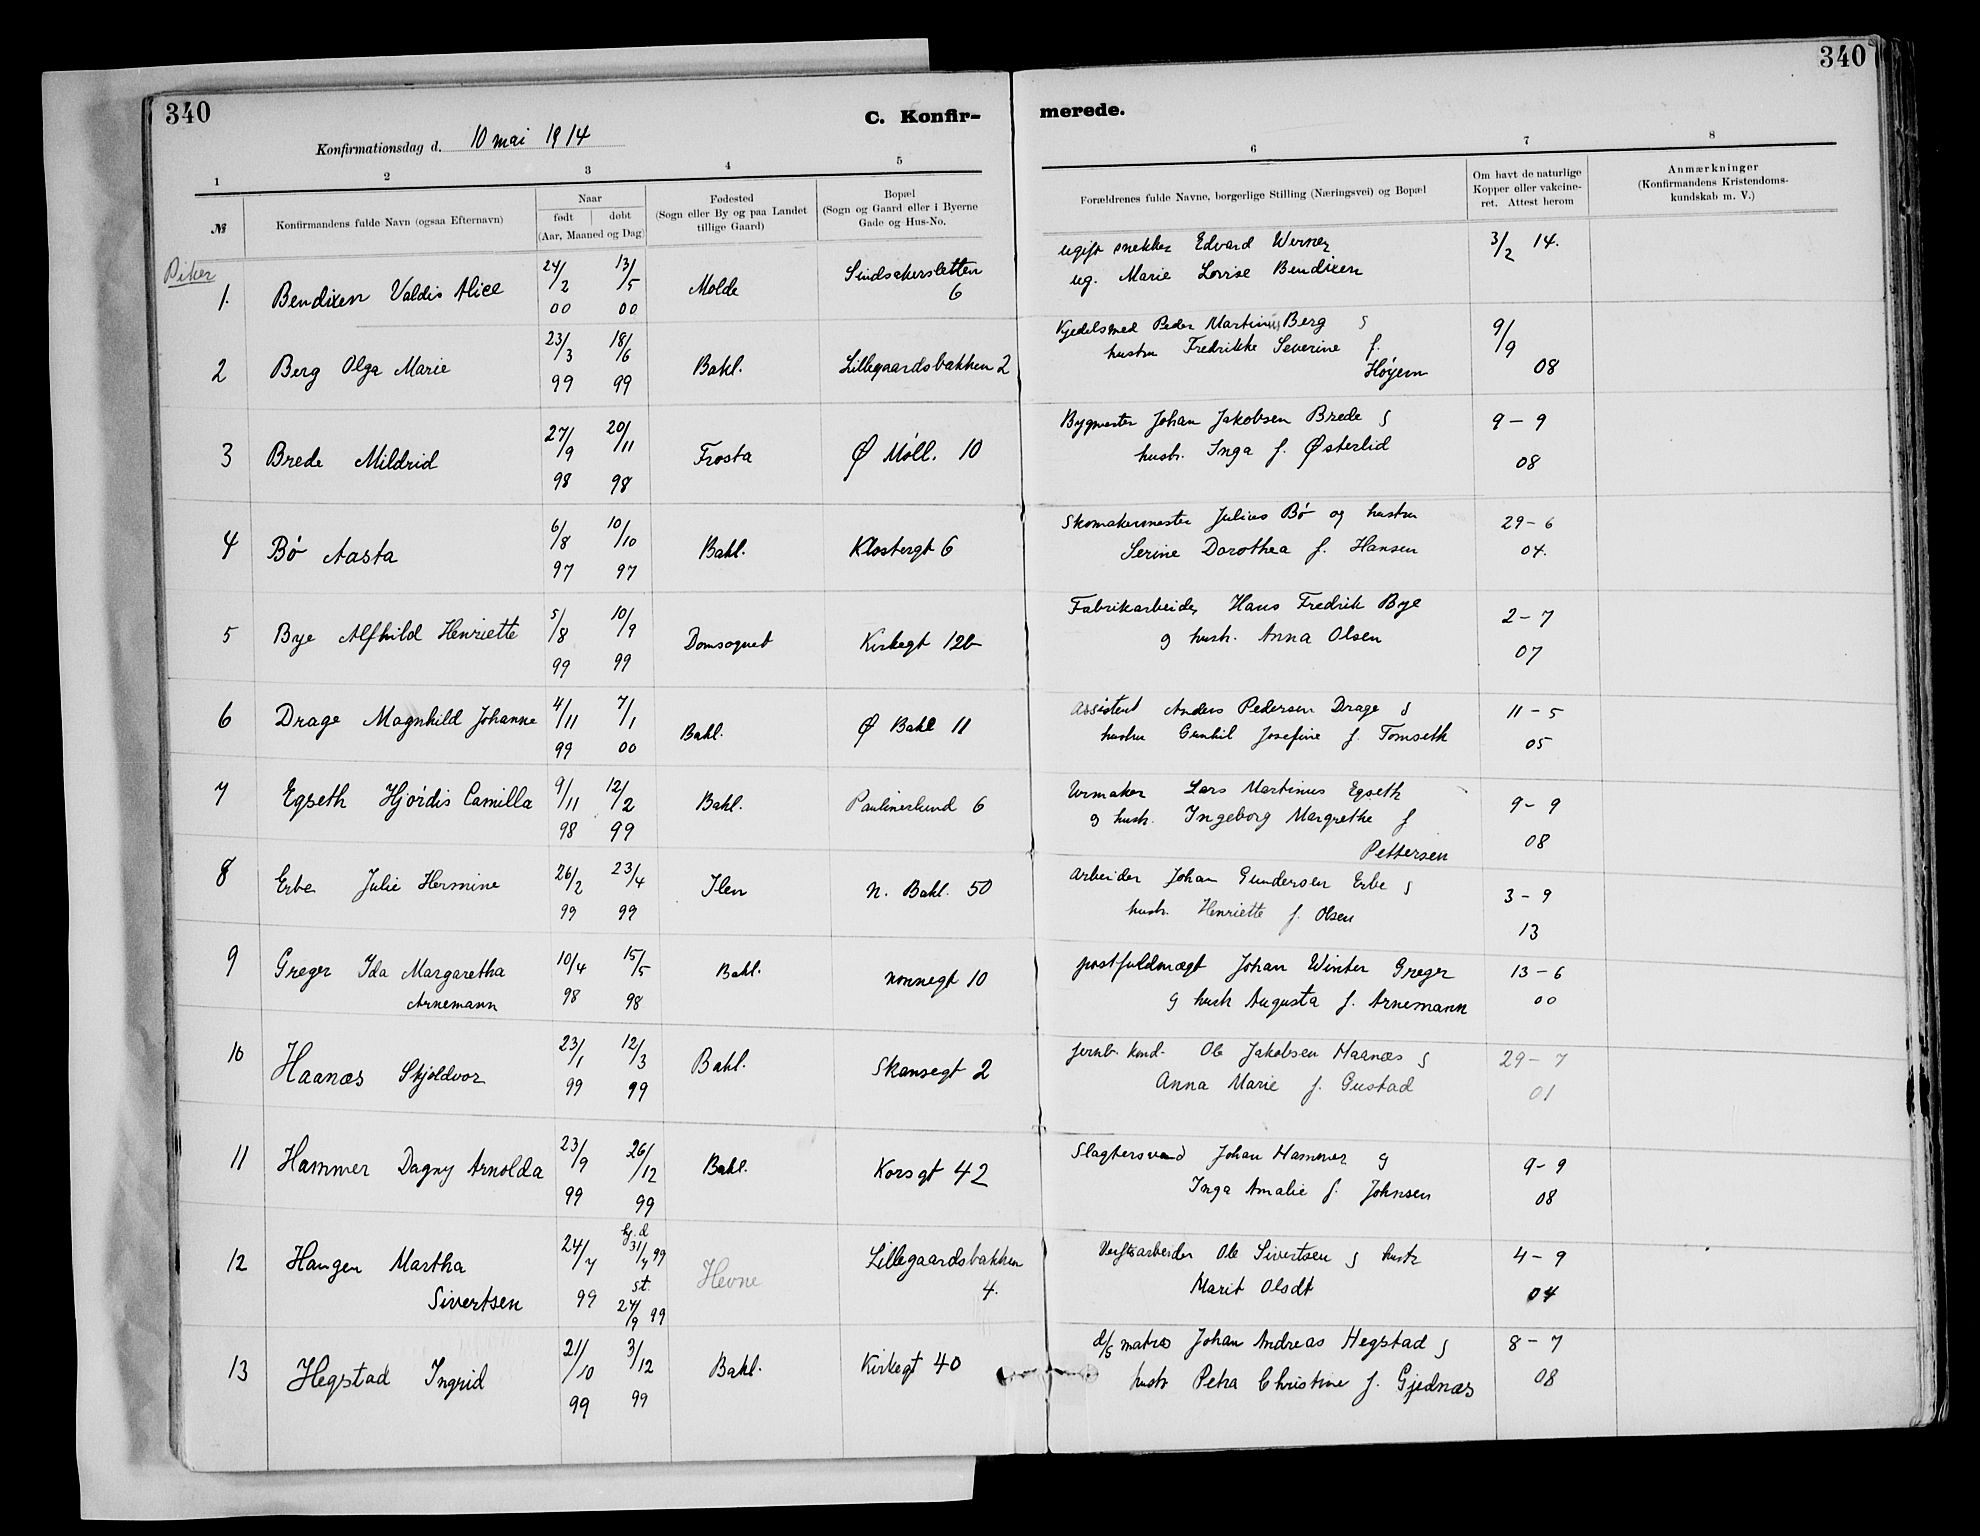 340
340
C. Konfir-
merede.
Konfirmationsdag d. 10 mai 1914
1 2 3 4 5 6 7 8
№
Konfirmandens fulde Navn (ogsaa Efternavn)
Naar
født døbt
(Aar, Maaned og Dag)
Fødested
(Sogn eller By og paa Landet
tillige Gaard)
Bopæl
(Sogn og Gaard eller i Byerne
Gade og Hus-No.
Forældrenes fulde Navne, borgerlige Stilling (Næringsvei) og Bopæl
Om havt de naturlige
Kopper eller vakcine-
ret. Attest herom
Anmærkninger
(Konfirmandens Kristendoms-
kundskab m. V.)
Piker
1. Bendixen Valdis Alice 24/2 00 13/5 00 Molde Sindsakersletten 6
ugift snekker Edvard Werner 3/2 14.
ug. Marie Lovise Bendixen
2 Berg Olga Marie 23/3 99 18/6 99 Bakl. Lillegaardsbakken 2
Kjedelsmed Peder Martinius Berg g 9/9 08
hustru Fredrikke Severine f.
Høyem
3 Brede Mildrid 27/9 98 20/11 98 Frosta Ø Møll. 10
Bygmester Johan Jakobsen Brede g 9-9
hustr. Inga f. Østerlid 08
4 Bø Aasta 6/8 97 10/10 97 Bakl. Klostergt 6
Skomakermester Julius Bø og hustru 29-6
Serine Dorothea f. Hansen 04.
5 Bye Alfhild Henriette 5/8 99 10/9 99 Domsognet Kirkegt 12b
Fabrikarbeider Hans Fredrik Bye 2-7
g hustr. Anna Olsen 07
6 Drage Magnhild Johanne 4/11 99 7/1 00 Bakl. Ø Bakl 11
Assistent Anders Pedersen Drage g 11-5
hustru Gunhil Josefine f. Tomseth 05
7 Egseth Hjørdis Camilla 9/11 98 12/2 99 Bakl. Paulinerlund 6
Urmaker Lars Martinus Egseth 9-9
g hustr. Ingeborg Margrethe f 08
Pettersen
8 Erbe Julie Hermine 26/2 99 23/4 99 Ilen N. Bakl. 50
Arbeider Johan Gundersen Erbe g 3-9
hustr. Henriette f. Olsen 13
9 Greger Ida Margaretha 10/4 98 15/5 98 Bakl. Nonnegt 10
Arnemann
postfuldmægt Johan Winter Greger 13-6
g hustr Augusta f. Arnemann 00
10 Haanæs Skjoldvor 23/1 99 12/3 99 Bakl. Skansegt 2
jernb. kond. Ole Jakobsen Haanæs g 29-7
Anna Marie f. Gustad 01
11 Hammer Dagny Arnolda 23/9 99 26/12 99 Bakl. Korsgt 42
Slagtersvend Johan Hammer g 9-9
Inga Amalie f. Johnsen 08
12 Haugen Martha 24/7 99 hj.d 31/7 99 st. 24/9 99 Hevne Lillegaardsbakken 4.
Sivertsen
Verftsarbeider Ole Sivertsen g hustr 4-9
Marit Olsdt 04
13 Hegstad Ingrid 21/10 99 3/12 99 Bakl. Kirkegt 40
d/s matros Johan Andreas Hegstad g 8-7
hustr Petra Christine f. Gjednæs 08